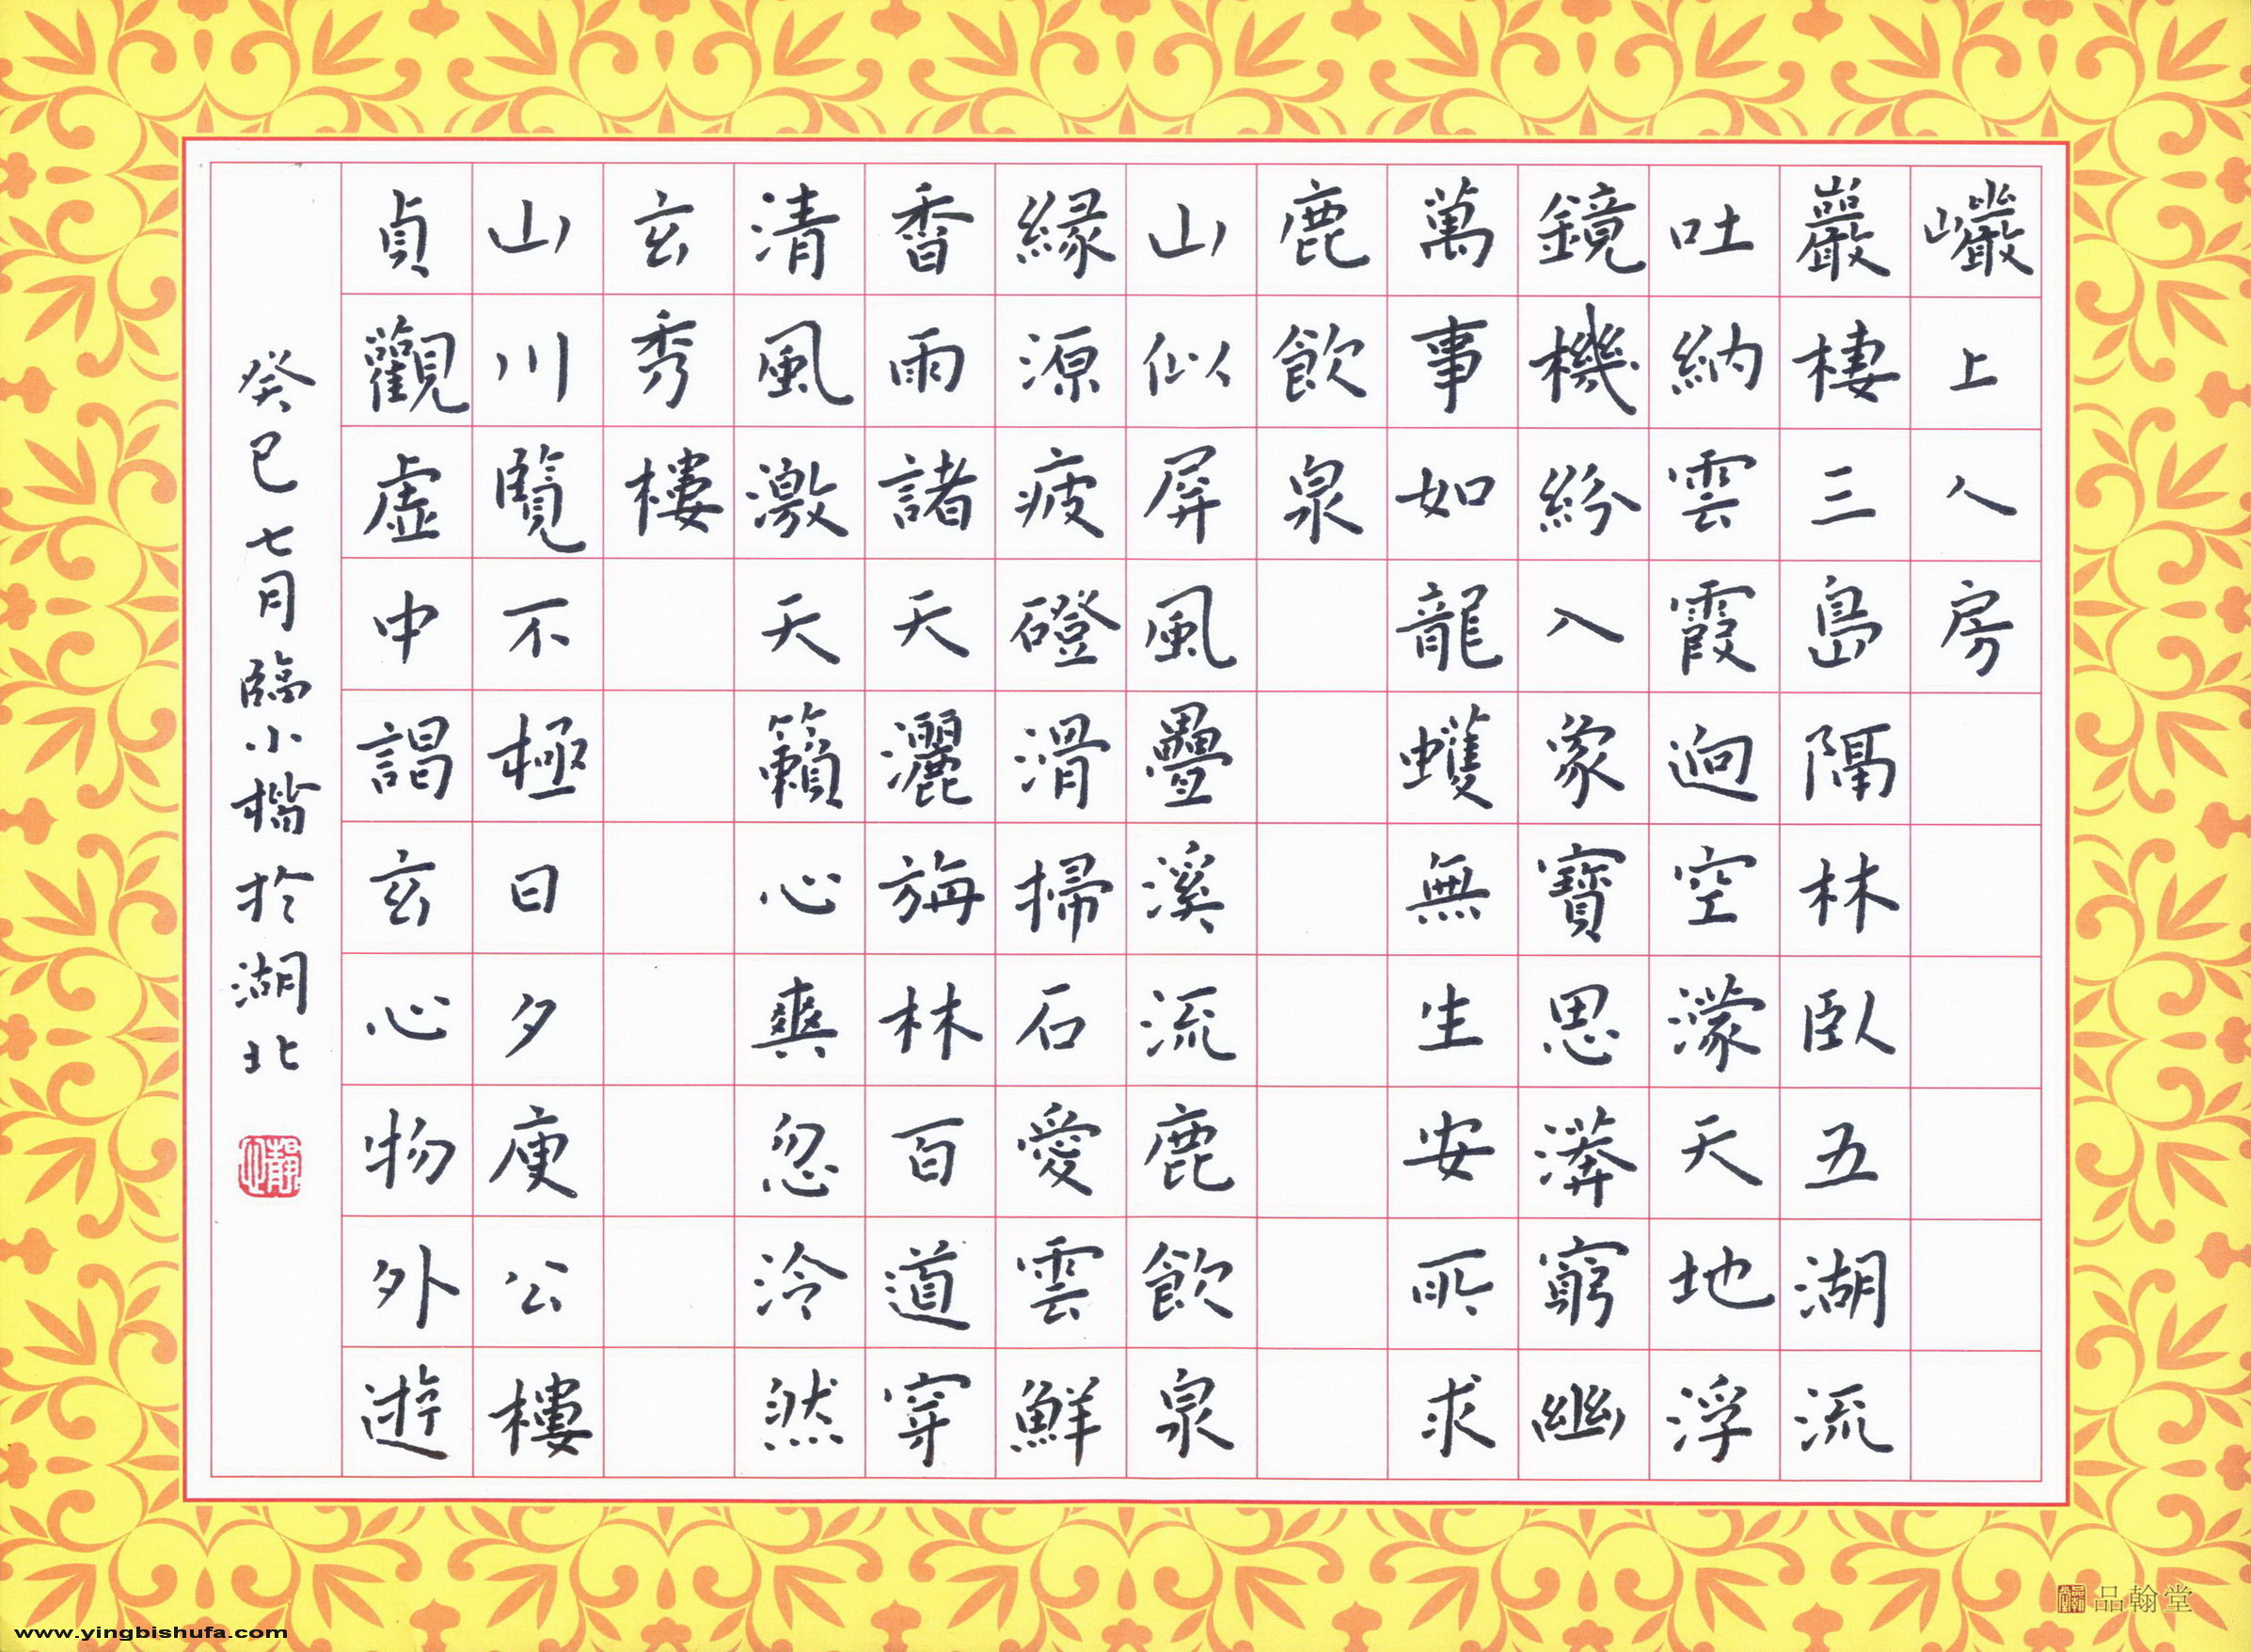 巖上人房
巖棲三島隔林臥五湖流
吐納雲霞迥空濛天地浮
鏡機紛入象寶思漭窮幽
萬事如龍蠖無生安所求
鹿飲泉
山似屏風疊溪流鹿飲泉
緣源疲磴滑掃石愛雲鮮
香雨諸天灑旃林百道穿
清風激天籟心爽忽泠然
玄秀樓
山川覽不極日夕庾公樓
貞觀虛中謁玄心物外遊
癸巳七月臨小楷於湖北
品翰堂
www.yingbishufa.com